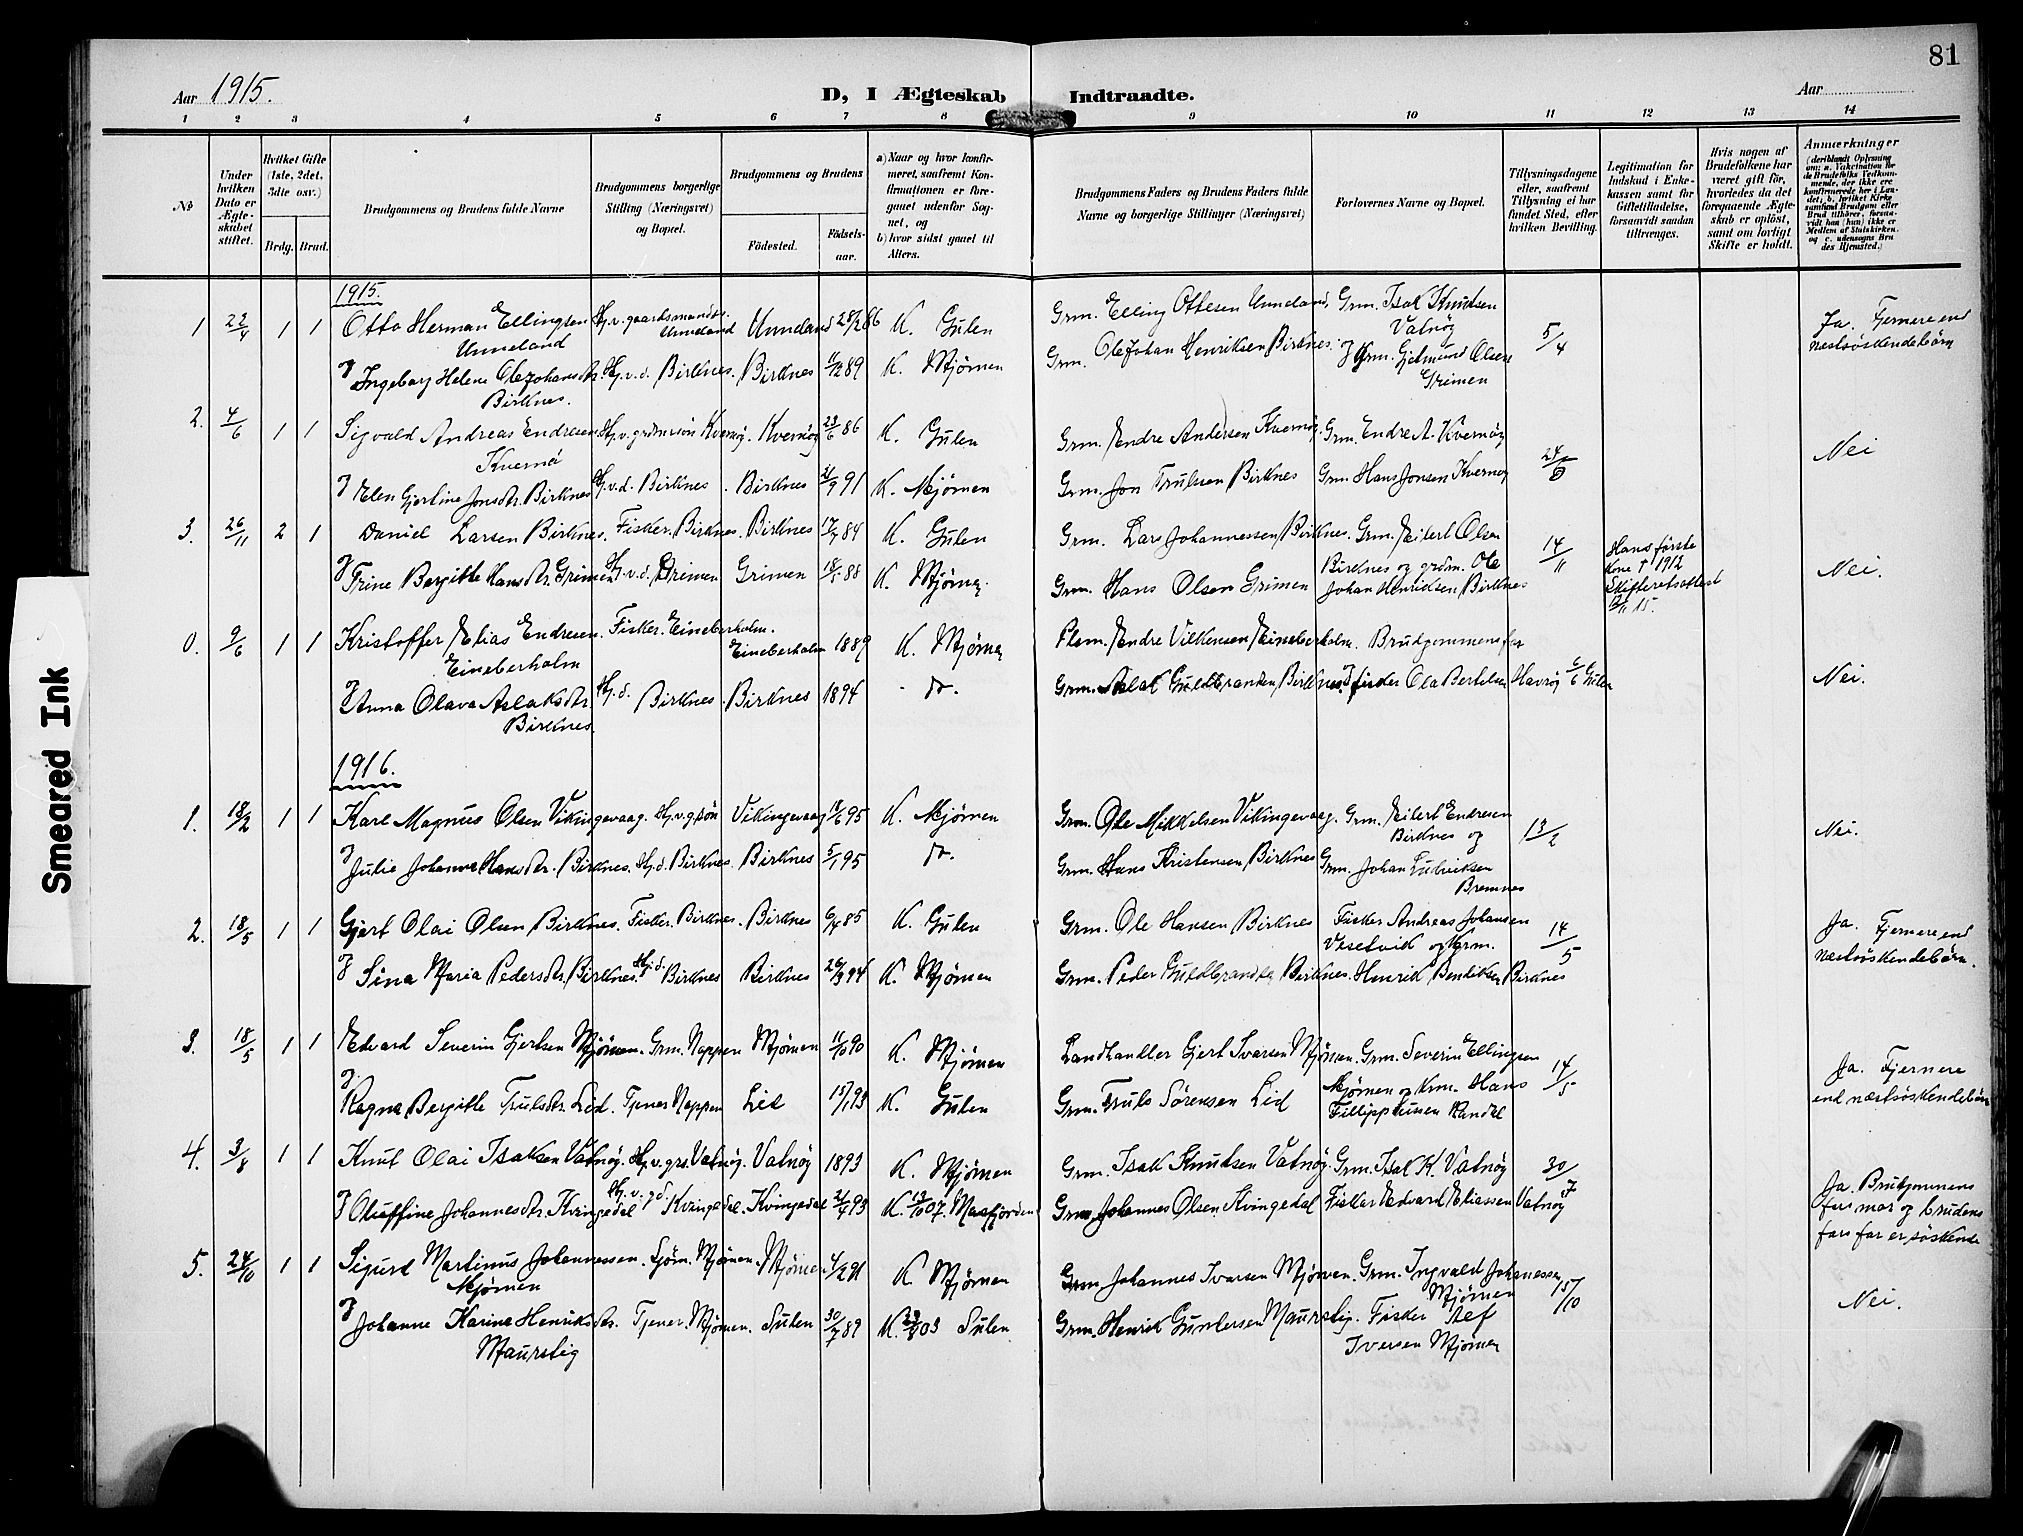 81
Aar 1915.
D, I Ægteskab Indtraadte.
Aar
1 2 3 4 5 6 7 8 9 10 11 12 13 14
No
Under hvilken Dato er Ægteskabet stiftet.
Hvilket Gifte (1ste, 2det, 3die osv.)
Brdg. Brud.
Brudgommens og Brudens fulde Navne
Brudgommens borgerlige Stilling (Næringsvei) og Bopæl.
Brudgommens og Brudens
Fødested. Fødselsaar.
a) Naar og hvor konfirmeret, saafremt Konfirmationen er foregaaet udenfor Sognet, og
b) hvor sidst gaaet til Alters.
Brudgommens Faders og Brudens Faders fulde Navne og borgerlige Stillinger (Næringsvei)
Forlovernes Navne og Bopæl.
Tillysningsdagene eller, saafremt Tillysning ei har fundet Sted, efter hvilken Bevilling.
Legitimation for Indskud i Enkekassen samt for Giftetilladelse, forsaavidt saadan tiltrænges.
Hvis nogen af Brudefolkene har været gift før, hvorledes da det foregaaende Ægteskab er opløst, samt om lovligt Skifte er holdt.
Anmærkninger
(deriblandt Oplysning om: a. Vakcination for de Brudefolks Vedkommende, der ikke ere konfirmerede her i Landet; b. hvilket Kirkesamfund Brudgom eller Brud tilhører, forsaavidt han (hun) ikke er Medlem af Statskirken, og c. udensogns Brudes Hjemsted.)
1915.
1 22/4 1 1 Otto Herman Ellingsen Unneland Hj.v. gaardsmandss. Unneland Unneland 86 K. Gulen Grm. Elling Ottesen Unneland. Grm. Isak Knudsen Vatnøy 5/4 Ja. Fjernere end næstsøskendebørn
Ingeborg Helene Olejohansdtr. Birknes. Hj.v.d. Birknes. Birknes 11/12 89 K. Mjømen Grm. Ole Johan Henriksen Birknes. Grm. Gjetmund Olsen Grimen
2. 4/6 1 1 Sigvald Andreas Endresen Kvernø Hj.v. Kvernøy. Kvernøy 23/6 86 K. Gulen Grm. Endre Andersen Kvernøy. Grm. Endre A. Kvernøy 24/5 Nei
Elen Gjertine Jonsdtr. Birknes Hj.v.d. Birknes Birknes 91 K. Mjømen Grm. Jon Trulsen Birknes Grm Hans Jonsen Kvernøy
3. 26/11 2 1 Daniel Larsen Birknes. Fisker. Birknes. Birknes 84 K. Gulen Grm. Lars Johannessen Birknes. Grm. Eilert Olsen Birknes og grdm. Ole Johan Henriksen Birknes 14/11 Hans første kone † 1912 Skifteretsattest 15. Nei.
Trine Bergitte Hansdtr. Grimen Hj.v.d. Grimen Grimen 88 K. Mjømen. Grm. Hans Olsen Grimen
0. 9/6 1 1 Kristoffer Elias Endresen Eineberholm Fisker. Eineberholm. Eineberholm 1889 K. Mjømen Plsm. Endre Vilkensen Eineberholm. Brudgommens far 6/6 Gulen Nei.
Anna Olava Aslaksdtr. Birknes Hj.d. Birknes. Birknes 1894 dr. Grm. Aslak Guldbrandsen, Birknes. fisker Ola Bertelsen Havrøy
1916.
1. 18/2 1 1 Karl Magnus Olsen Vikingevaag. Hj.v.g.søn Vikingevaag 95 K. Mjømen Grm. Ole Mikkelsen Vikingevaag. Grm. Eilert Endresen Birknes og 13/2 Nei.
Julie Johanne Hansdtr. Birknes. Hj.d. Birknes. Birknes 5/1 95 dr. Grm. Hans Kristensen Birknes Grm. Johan Ludviksen Bremnes
2. 18/5 1 1 Gjert Olai Olsen Birknes. Fisker. Birknes. Birknes 6/4 85 K. Gulen Grm. Ole Hansen Birknes Fisker Andreas Johansen og Krm. 14/5 Ja. Fjernere end næstsøskendebørn.
Sina Maria Pedersdtr. Birknes. Hj.d. Birknes Birknes 26/3 94 K. Mjømen Grm. Peder Guldbrandsen Birknes. Henrik Bendiksen Birknes
3. 18/5 1 1 Edvard Severin Gjertsen Mjømen. Grm. Nappen Mjømen 11/10 90 K. Mjømen Landhandler Gjert Ivarsen Mjømen. Grm. Severin Ellingsen Mjømen og Krm. Hans Fillipphusen Randal 14/5 Ja. Fjernere end næstsøskendebørn
Ragna Bergitte Trulsdtr. Lid. Tjener Nappen Lid 15/1 93 K. Gulen Grm. Truls Sørensen Lid
4. 3/8 1 1 Knut Olai Isaksen Vatnøy. Hj.v.grs. Vatnøy. Vatnøy 1893 K. Mjømen Grm. Isak Knudsen Vatnøy. Grm. Isak K. Vatnøy 30/7 Ja. Brudgommens fars mor og brudens fars far er søskende
Oluffine Johannesdtr. Kvingedal Hj.v.g.d. Kvingedal. Kvingedal 93 K. 13/10 07. Masfjorden Grm. Johannes Olsen Kvingedal Fisker Edvard Eliassen Vatnøy
5. 24/10 1 1 Sigurd Martinus Johannessen Mjømen Sjøm. Mjømen. Mjømen 4/2 91 K. Mjømen Grm Johannes Ivarsen Mjømen. Grm. Ingvald Johanessen Mjømen 15/10 Nei.
Johanne Karine Henriksdtr. Maurstig Tjener. Mjømen. Sulen 30/7 89 K. 03 Sulen Grm. Henrik Guntersen Maurstig. Fisker Alef Iversen Mjømen
Smeared Ink